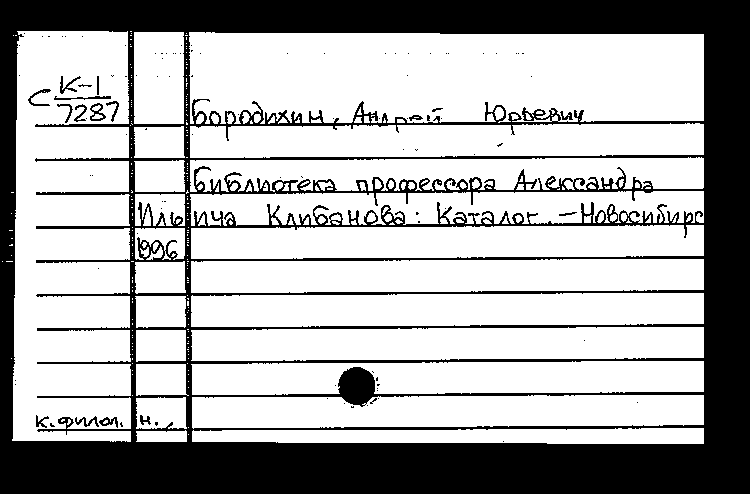 С К-1
7287
Бородихин, Андрей Юрьевич
Библиотека профессора Александра
Ильича Клибанова: Каталог. - Новосибирс
1996
к. филол. н.,